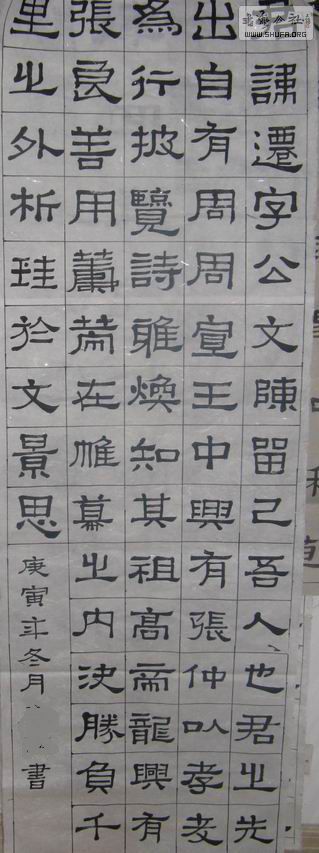 諱遷字公文陳留己吾人也君之先
出自有周周宣王中興有張仲以孝友
為行披覽詩雅煥知其祖高帝龍興有
張良善用籌策在帷幕之内決勝負千
里之外析珪於文景思
庚寅年冬月
書
WWW.SHUFA.ORG